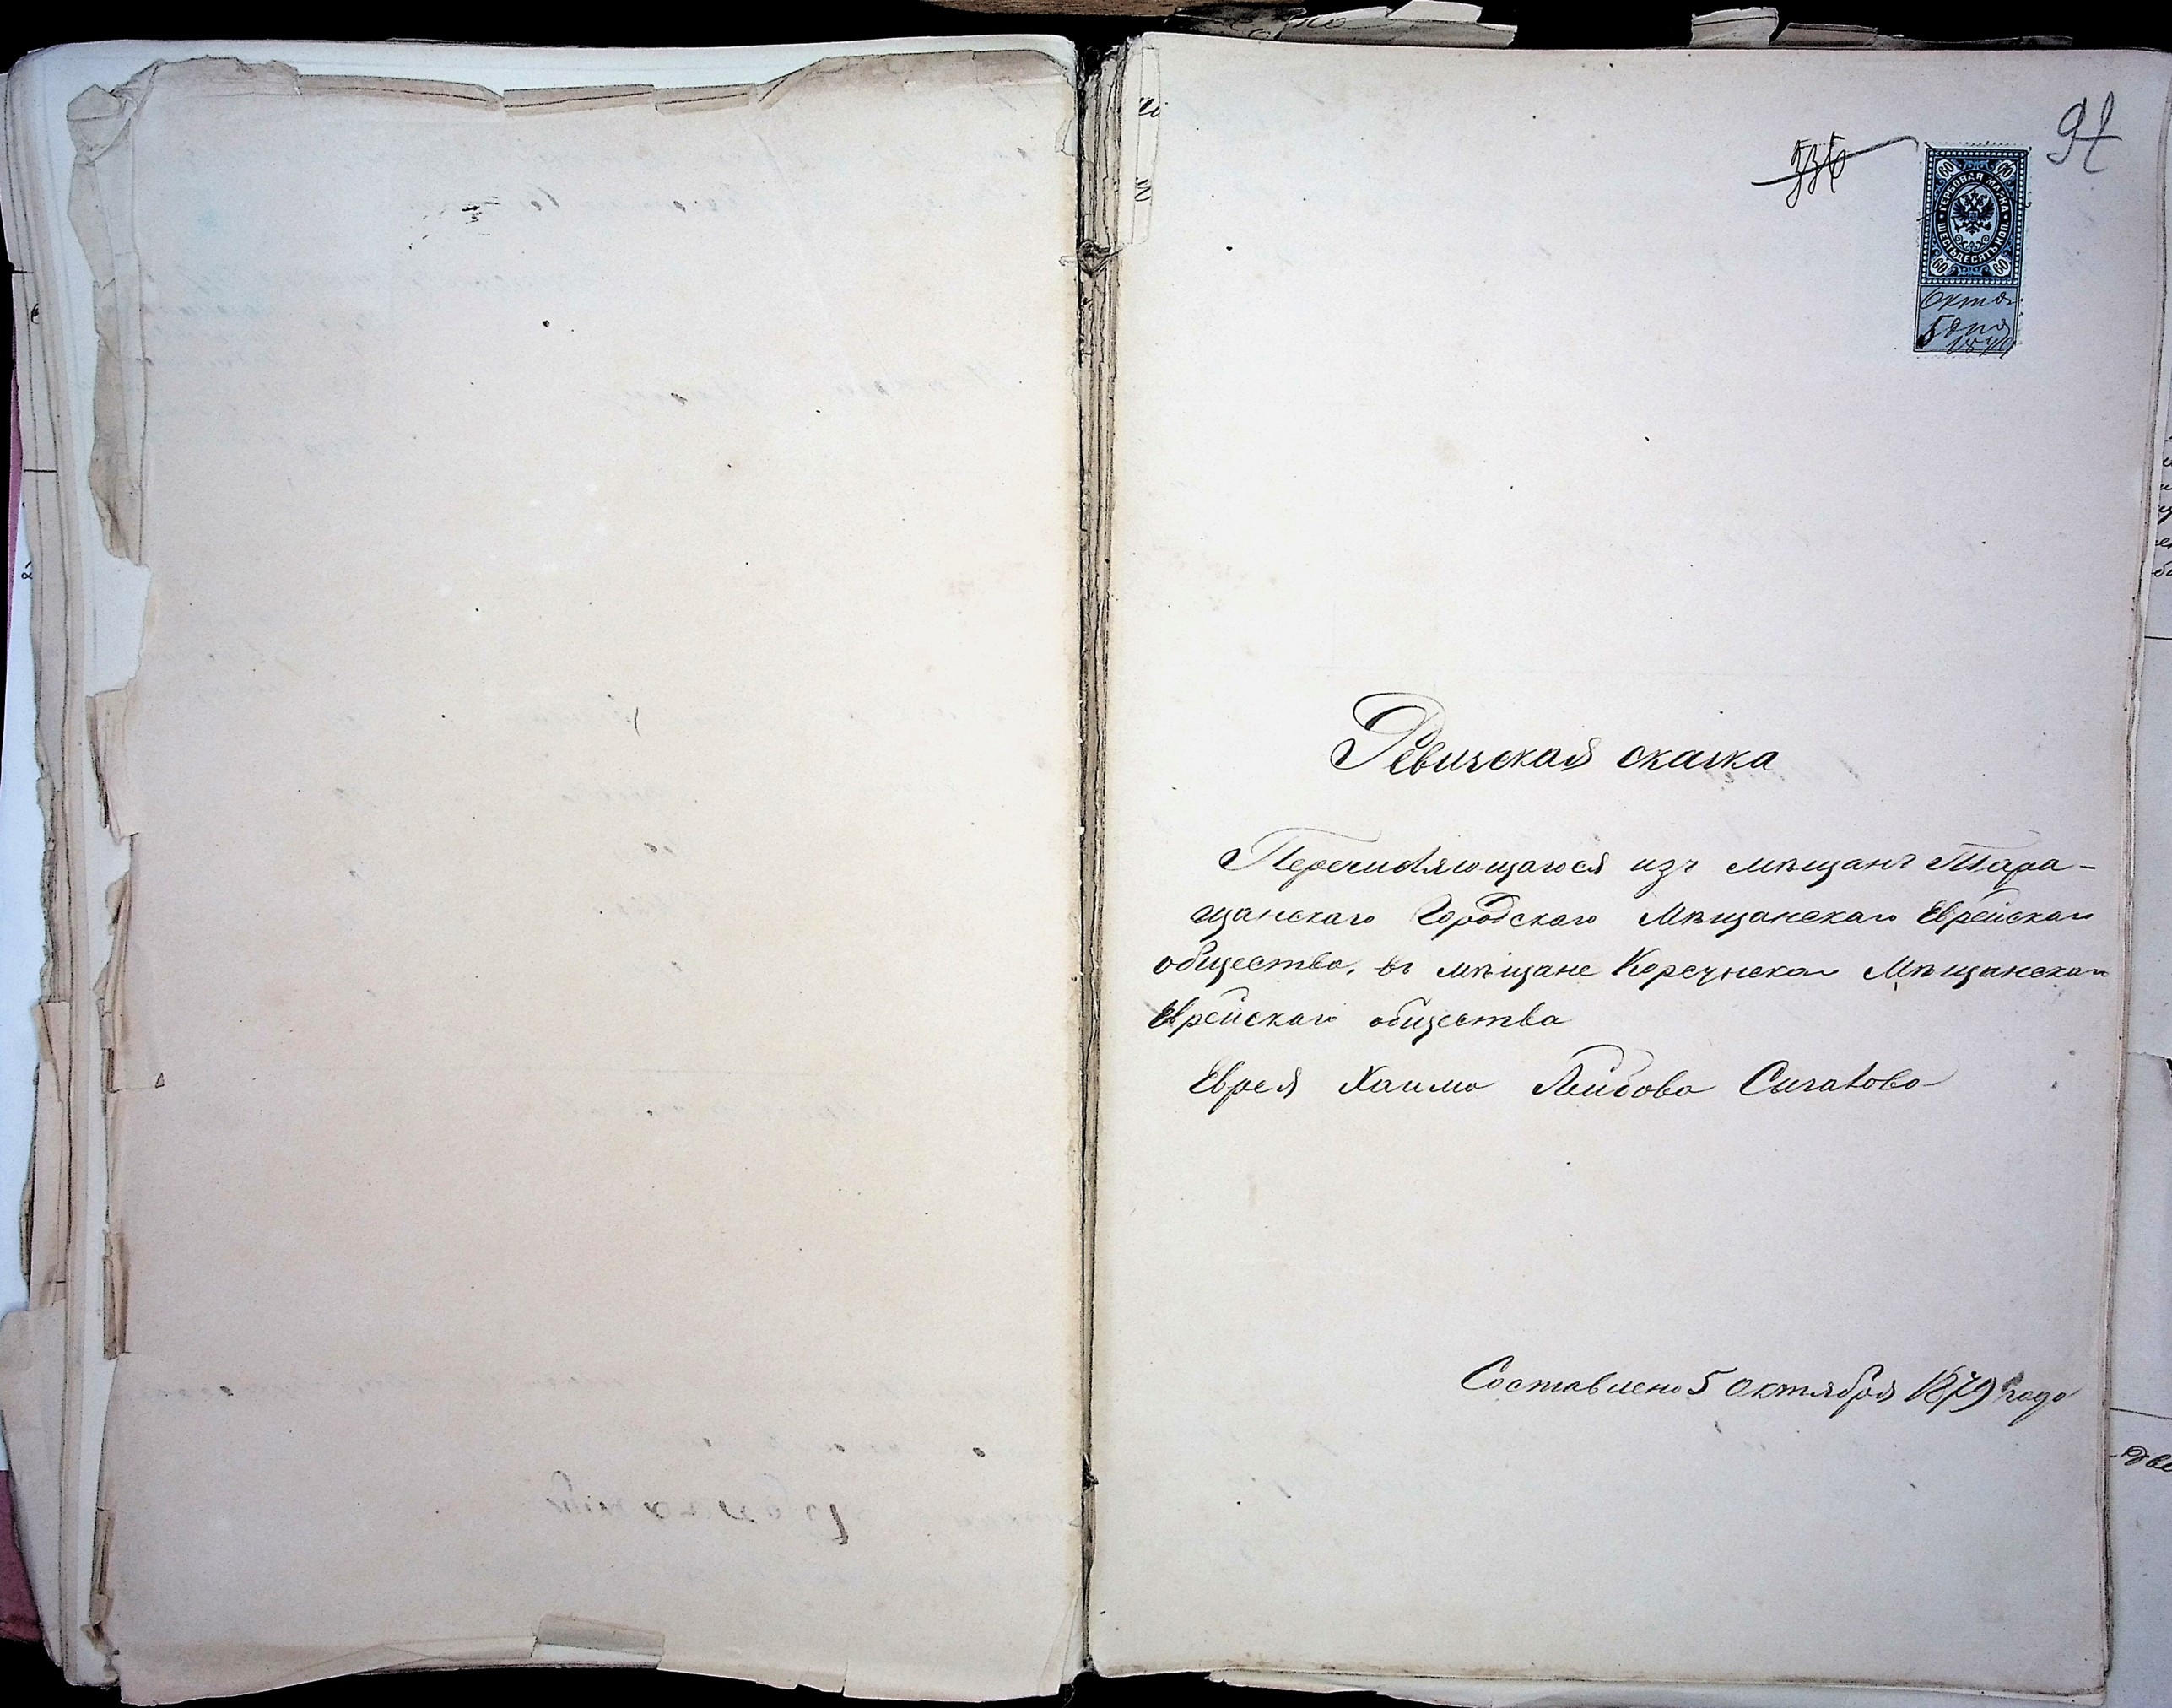 91
536
60 60
ГЕРБОВАЯ МАРКА
ШЕСТЬДЕСЯТЪ КОП.
60 60
Октяб.
5 дня
1879
Ревизская сказка
Перечисляющагося изъ мѣщанъ Тара-
щанскаго Городскаго Мѣщанскаго Еврейскаго
общества, въ мѣщане Корсунскаго Мѣщанскаго
Еврейскаго общества
Еврея Хаима Лейбова Сигалова
Составлена 5 октября 1879 года